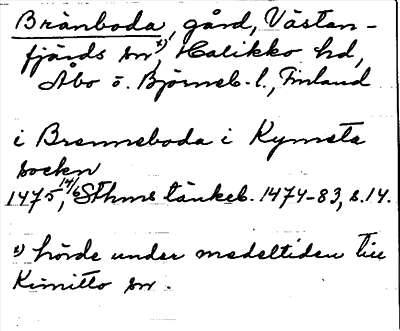 Brånboda, gård, Västan-
fjärds sn¹⁾, Halikko hd,
Åbo o. Björneb. l., Finland
i Brenneboda i Kymeta
sockn
1475 14/6, Sthms tänkeb. 1474-83, s. 14.
¹⁾ hörde under medeltiden till
Kimitto sn.